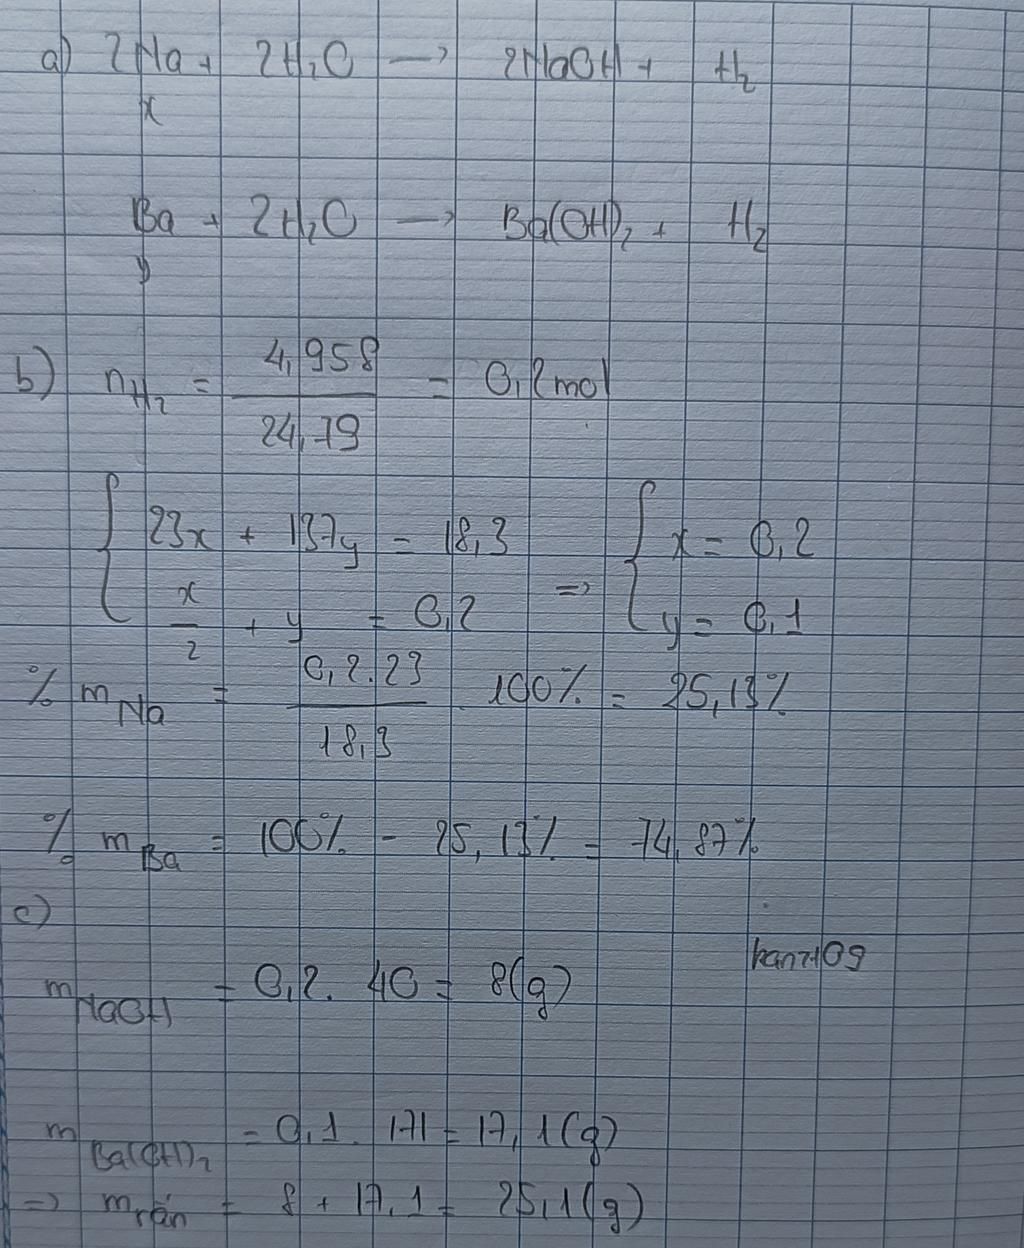 a) 2Na + 2H₂O → 2NaOH + H₂
x
Ba + 2H₂O → Ba(OH)₂ + H₂
y
b) n_H₂ = 4,958 / 24,79 = 0,2 mol
{ 23x + 137y = 18,3 ⇒ { x = 0,2
x/2 + y = 0,2 y = 0,1
% m_Na = 0,2.23 / 18,3 . 100% = 25,13%
% m_Ba = 100% - 25,13% = 74,87%
c)
m_NaOH = 0,2. 40 = 8(g)
m_Ba(OH)₂ = 0,1. 171 = 17,1(g)
⇒ m_rắn = 8 + 17,1 = 25,1(g)